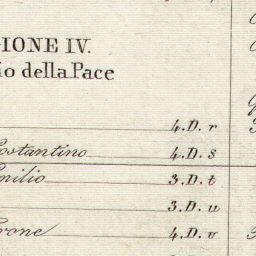 GIONE IV.
io della Pace
4. D. r
Costantino 4. D. s
milio 3. D. t
3. D. u
rone 4. D. v
3